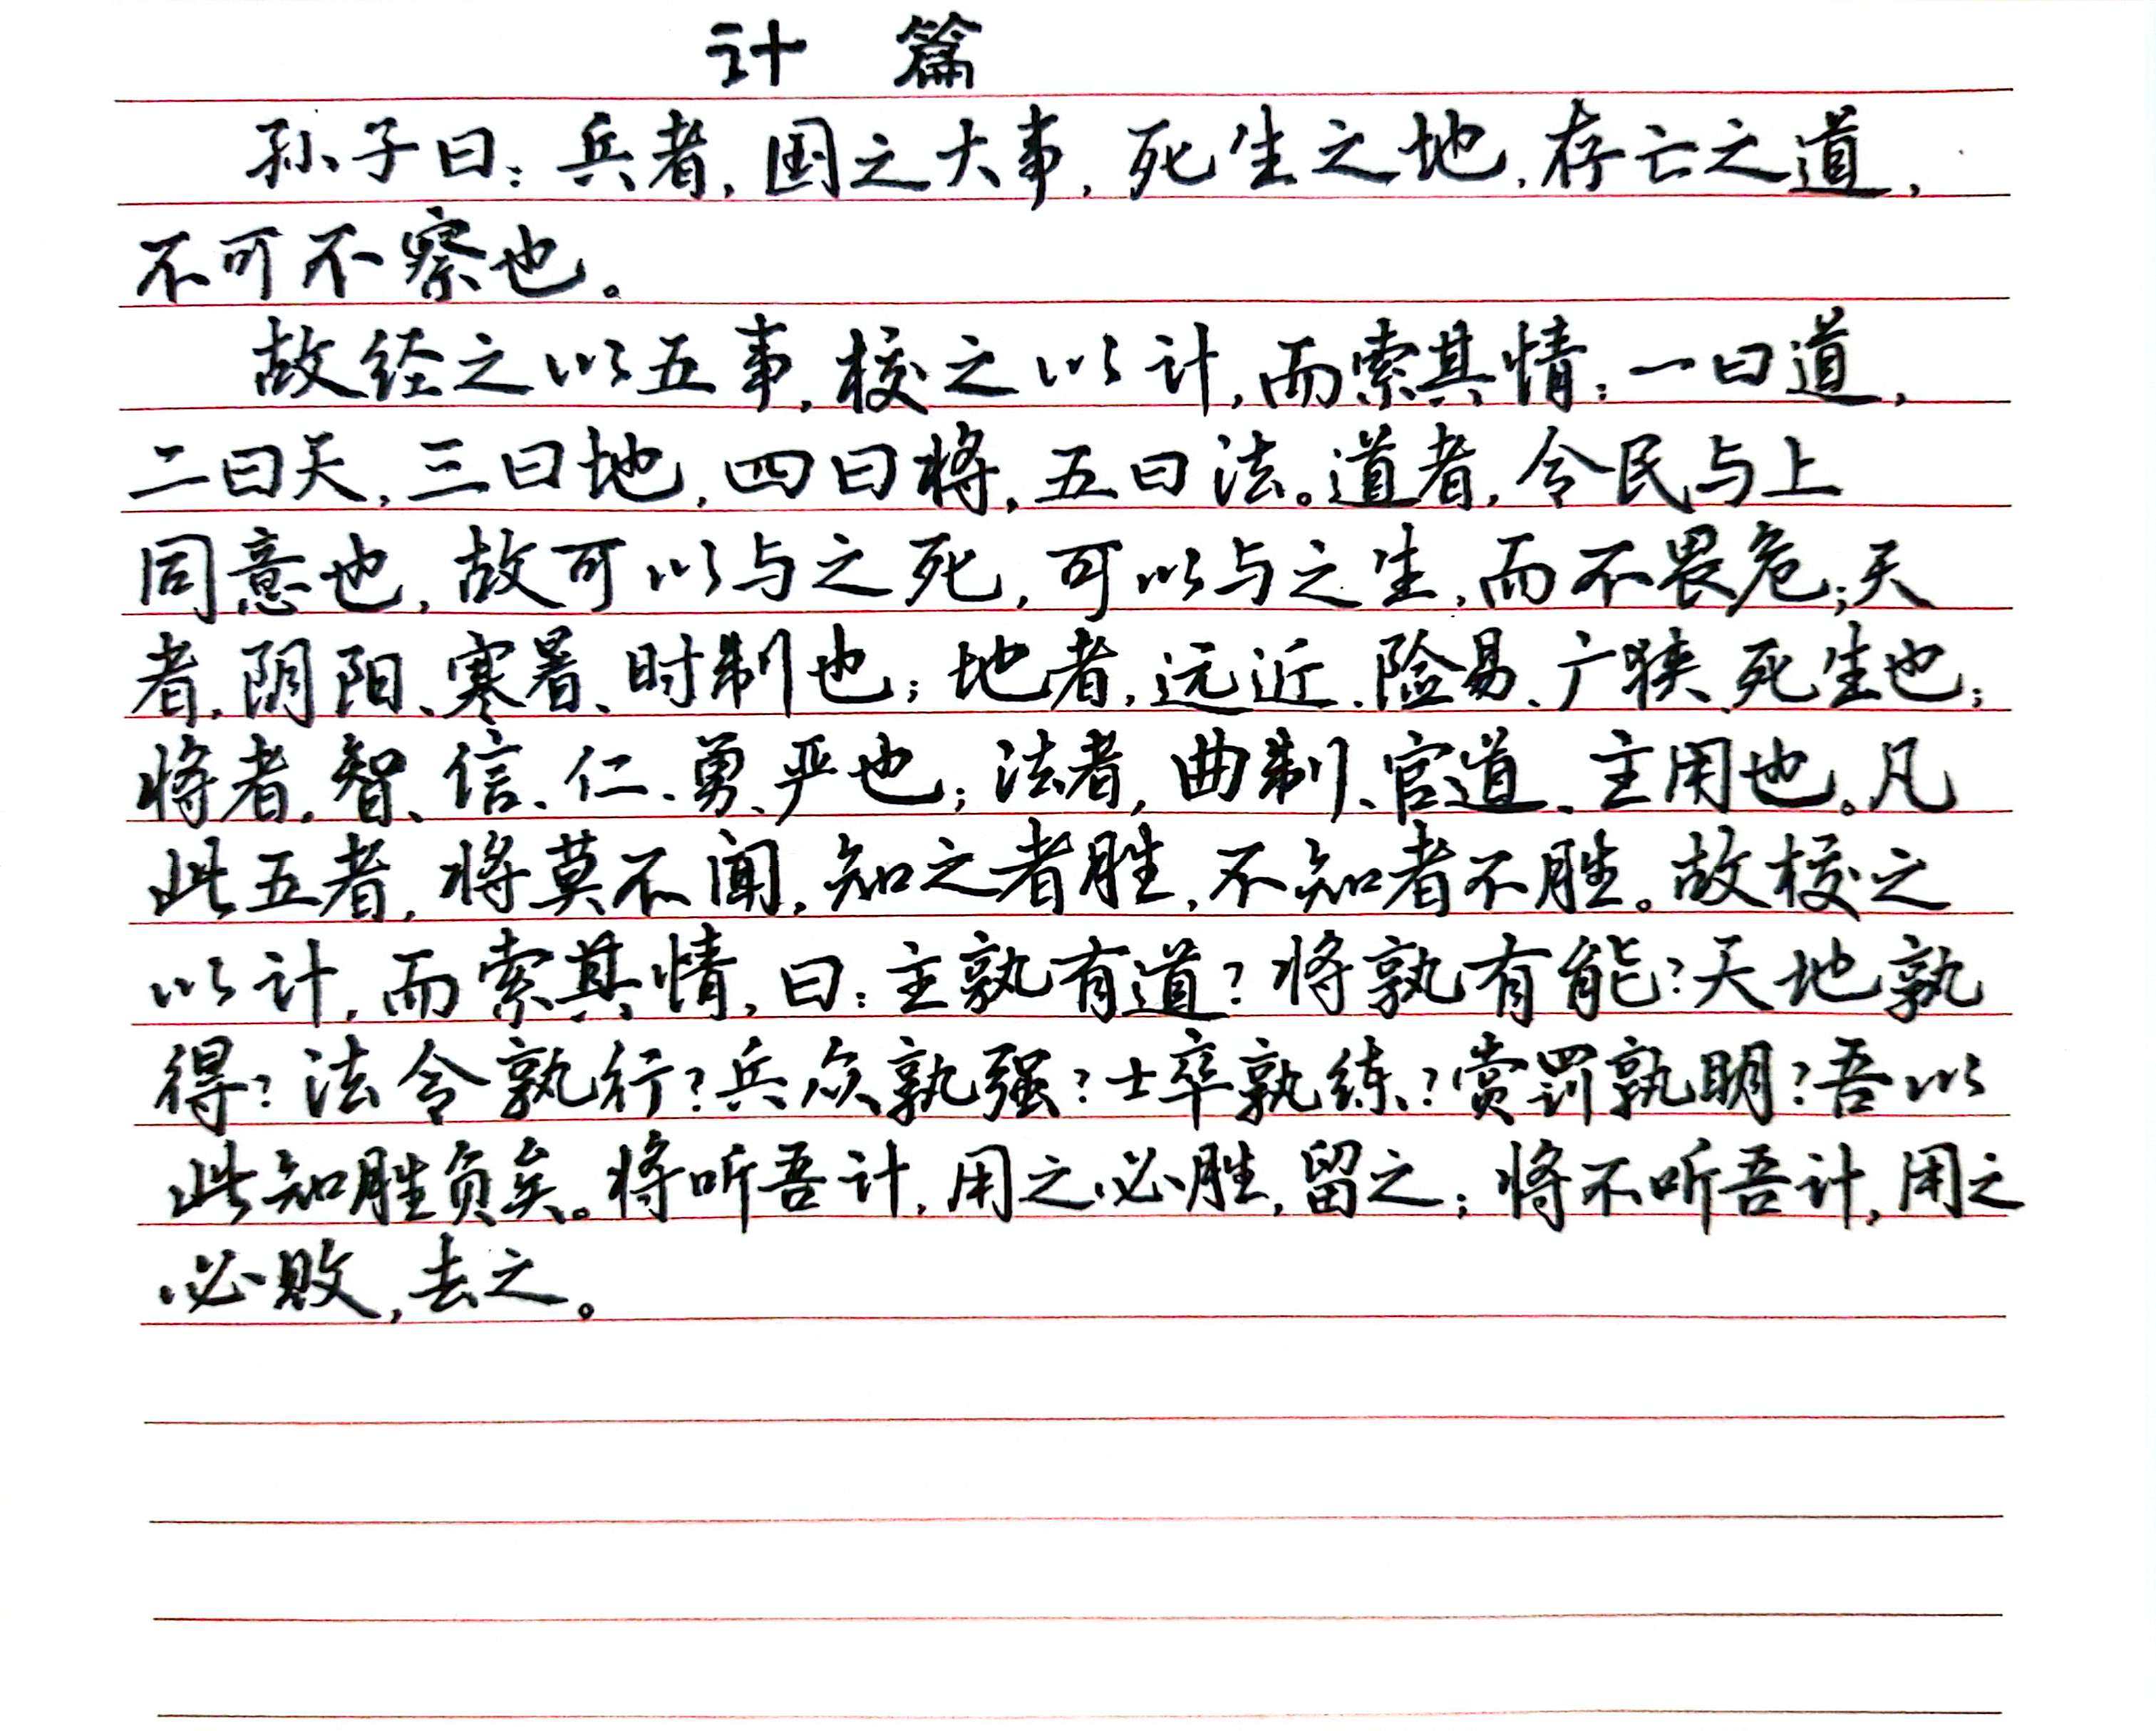 计 篇
孙子曰：兵者，国之大事，死生之地，存亡之道，
不可不察也。
故经之以五事，校之以计，而索其情：一曰道，
二曰天，三曰地，四曰将，五曰法。道者，令民与上
同意也，故可以与之死，可以与之生，而不畏危；天
者，阴阳、寒暑、时制也；地者，远近、险易、广狭、死生也；
将者，智、信、仁、勇、严也；法者，曲制、官道、主用也。凡
此五者，将莫不闻，知之者胜，不知者不胜。故校之
以计，而索其情，曰：主孰有道？将孰有能？天地孰
得？法令孰行？兵众孰强？士卒孰练？赏罚孰明？吾以
此知胜负矣。将听吾计，用之必胜，留之；将不听吾计，用之
必败，去之。